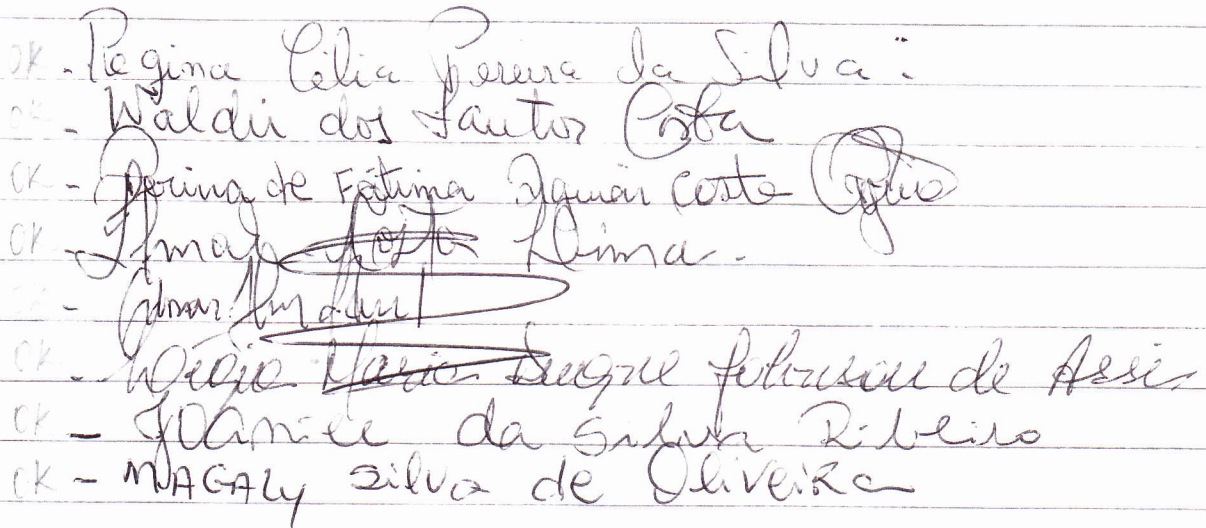 OK - Regina Célia Pereira da Silva.
OK - Waldir dos Santos Costa
OK - de Fátima Aguiar Costa
OK - Costa Lima.
OK -
OK - Maria Duque Johnson de Assis
OK - JOANICE da Silva Ribeiro
OK - MAGALY Silva de OliveiRa